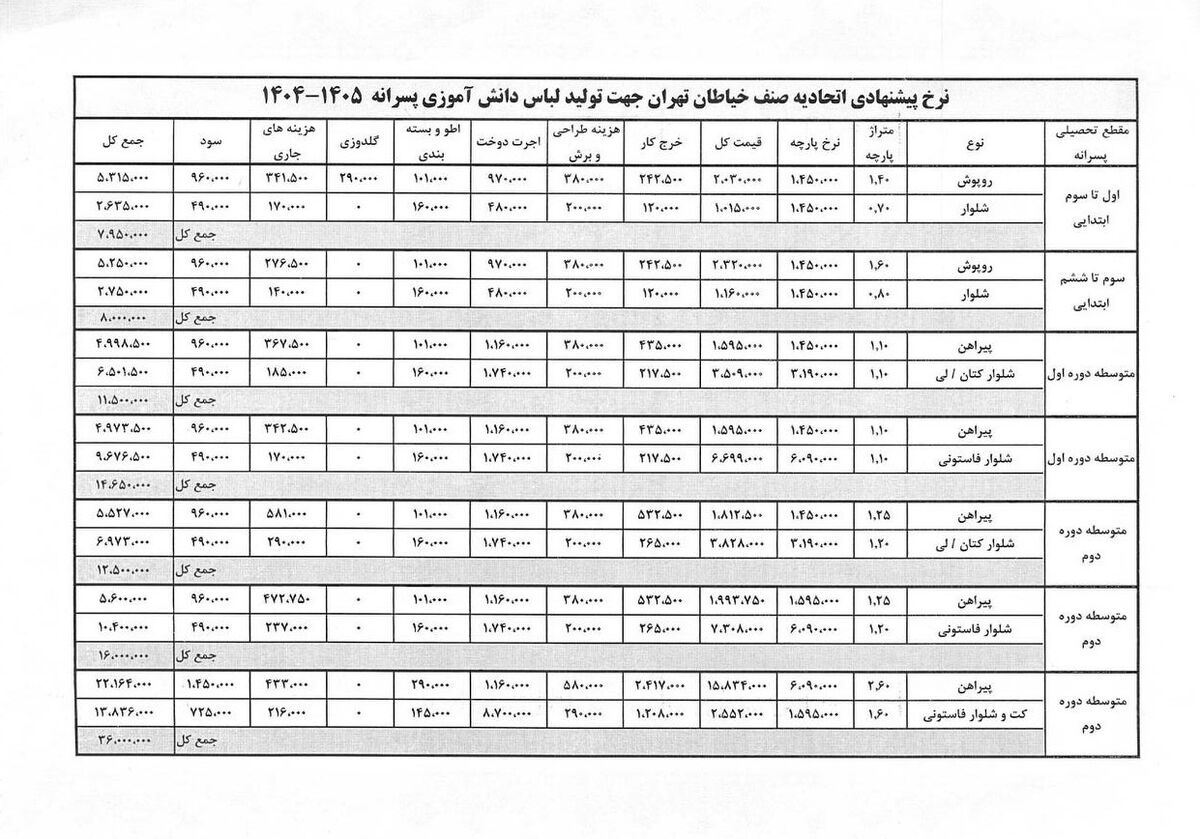 نرخ پیشنهادی اتحادیه صنف خیاطان تهران جهت تولید لباس دانش آموزی پسرانه ۱۴۰۵-۱۴۰۴
مقطع تحصیلی پسرانه | نوع | متراژ پارچه | نرخ پارچه | قیمت کل | خرج کار | هزینه طراحی و برش | اجرت دوخت | اطو و بسته بندی | گلدوزی | هزینه های جاری | سود | جمع کل
اول تا سوم ابتدایی | روپوش | ۱,۴۰ | ۱,۴۵۰,۰۰۰ | ۲,۰۳۰,۰۰۰ | ۲۴۲,۵۰۰ | ۳۸۰,۰۰۰ | ۹۷۰,۰۰۰ | ۱۰۱,۰۰۰ | ۲۹۰,۰۰۰ | ۳۴۱,۵۰۰ | ۹۶۰,۰۰۰ | ۵,۳۱۵,۰۰۰
شلوار | ۰,۷۰ | ۱,۴۵۰,۰۰۰ | ۱,۰۱۵,۰۰۰ | ۱۲۰,۰۰۰ | ۲۰۰,۰۰۰ | ۴۸۰,۰۰۰ | ۱۶۰,۰۰۰ | ۰ | ۱۷۰,۰۰۰ | ۴۹۰,۰۰۰ | ۲,۶۳۵,۰۰۰
جمع کل | ۷,۹۵۰,۰۰۰
سوم تا ششم ابتدایی | روپوش | ۱,۶۰ | ۱,۴۵۰,۰۰۰ | ۲,۳۲۰,۰۰۰ | ۲۴۲,۵۰۰ | ۳۸۰,۰۰۰ | ۹۷۰,۰۰۰ | ۱۰۱,۰۰۰ | ۰ | ۲۷۶,۵۰۰ | ۹۶۰,۰۰۰ | ۵,۲۵۰,۰۰۰
شلوار | ۰,۸۰ | ۱,۴۵۰,۰۰۰ | ۱,۱۶۰,۰۰۰ | ۱۲۰,۰۰۰ | ۲۰۰,۰۰۰ | ۴۸۰,۰۰۰ | ۱۶۰,۰۰۰ | ۰ | ۱۴۰,۰۰۰ | ۴۹۰,۰۰۰ | ۲,۷۵۰,۰۰۰
جمع کل | ۸,۰۰۰,۰۰۰
متوسطه دوره اول | پیراهن | ۱,۱۰ | ۱,۴۵۰,۰۰۰ | ۱,۵۹۵,۰۰۰ | ۴۳۵,۰۰۰ | ۳۸۰,۰۰۰ | ۱,۱۶۰,۰۰۰ | ۱۰۱,۰۰۰ | ۰ | ۳۶۷,۵۰۰ | ۹۶۰,۰۰۰ | ۴,۹۹۸,۵۰۰
شلوار کتان / لی | ۱,۱۰ | ۳,۱۹۰,۰۰۰ | ۳,۵۰۹,۰۰۰ | ۲۱۷,۵۰۰ | ۲۰۰,۰۰۰ | ۱,۷۴۰,۰۰۰ | ۱۶۰,۰۰۰ | ۰ | ۱۸۵,۰۰۰ | ۴۹۰,۰۰۰ | ۶,۵۰۱,۵۰۰
جمع کل | ۱۱,۵۰۰,۰۰۰
متوسطه دوره اول | پیراهن | ۱,۱۰ | ۱,۴۵۰,۰۰۰ | ۱,۵۹۵,۰۰۰ | ۴۳۵,۰۰۰ | ۳۸۰,۰۰۰ | ۱,۱۶۰,۰۰۰ | ۱۰۱,۰۰۰ | ۰ | ۳۴۲,۵۰۰ | ۹۶۰,۰۰۰ | ۴,۹۷۳,۵۰۰
شلوار فاستونی | ۱,۱۰ | ۶,۰۹۰,۰۰۰ | ۶,۶۹۹,۰۰۰ | ۲۱۷,۵۰۰ | ۲۰۰,۰۰۰ | ۱,۷۴۰,۰۰۰ | ۱۶۰,۰۰۰ | ۰ | ۱۷۰,۰۰۰ | ۴۹۰,۰۰۰ | ۹,۶۷۶,۵۰۰
جمع کل | ۱۴,۶۵۰,۰۰۰
متوسطه دوره دوم | پیراهن | ۱,۲۵ | ۱,۴۵۰,۰۰۰ | ۱,۸۱۲,۵۰۰ | ۵۳۲,۵۰۰ | ۳۸۰,۰۰۰ | ۱,۱۶۰,۰۰۰ | ۱۰۱,۰۰۰ | ۰ | ۵۸۱,۰۰۰ | ۹۶۰,۰۰۰ | ۵,۵۲۷,۰۰۰
شلوار کتان / لی | ۱,۲۰ | ۳,۱۹۰,۰۰۰ | ۳,۸۲۸,۰۰۰ | ۲۶۵,۰۰۰ | ۲۰۰,۰۰۰ | ۱,۷۴۰,۰۰۰ | ۱۶۰,۰۰۰ | ۰ | ۲۹۰,۰۰۰ | ۴۹۰,۰۰۰ | ۶,۹۷۳,۰۰۰
جمع کل | ۱۲,۵۰۰,۰۰۰
متوسطه دوره دوم | پیراهن | ۱,۲۵ | ۱,۵۹۵,۰۰۰ | ۱,۹۹۳,۷۵۰ | ۵۳۲,۵۰۰ | ۳۸۰,۰۰۰ | ۱,۱۶۰,۰۰۰ | ۱۰۱,۰۰۰ | ۰ | ۴۷۲,۷۵۰ | ۹۶۰,۰۰۰ | ۵,۶۰۰,۰۰۰
شلوار فاستونی | ۱,۲۰ | ۶,۰۹۰,۰۰۰ | ۷,۳۰۸,۰۰۰ | ۲۶۵,۰۰۰ | ۲۰۰,۰۰۰ | ۱,۷۴۰,۰۰۰ | ۱۶۰,۰۰۰ | ۰ | ۲۳۷,۰۰۰ | ۴۹۰,۰۰۰ | ۱۰,۴۰۰,۰۰۰
جمع کل | ۱۶,۰۰۰,۰۰۰
متوسطه دوره دوم | پیراهن | ۲,۶۰ | ۶,۰۹۰,۰۰۰ | ۱۵,۸۳۴,۰۰۰ | ۲,۴۱۷,۰۰۰ | ۵۸۰,۰۰۰ | ۱,۱۶۰,۰۰۰ | ۲۹۰,۰۰۰ | ۰ | ۴۳۳,۰۰۰ | ۱,۴۵۰,۰۰۰ | ۲۲,۱۶۴,۰۰۰
کت و شلوار فاستونی | ۱,۶۰ | ۱,۵۹۵,۰۰۰ | ۲,۵۵۲,۰۰۰ | ۱,۲۰۸,۰۰۰ | ۲۹۰,۰۰۰ | ۸,۷۰۰,۰۰۰ | ۱۴۵,۰۰۰ | ۰ | ۲۱۶,۰۰۰ | ۷۲۵,۰۰۰ | ۱۳,۸۳۶,۰۰۰
جمع کل | ۳۶,۰۰۰,۰۰۰